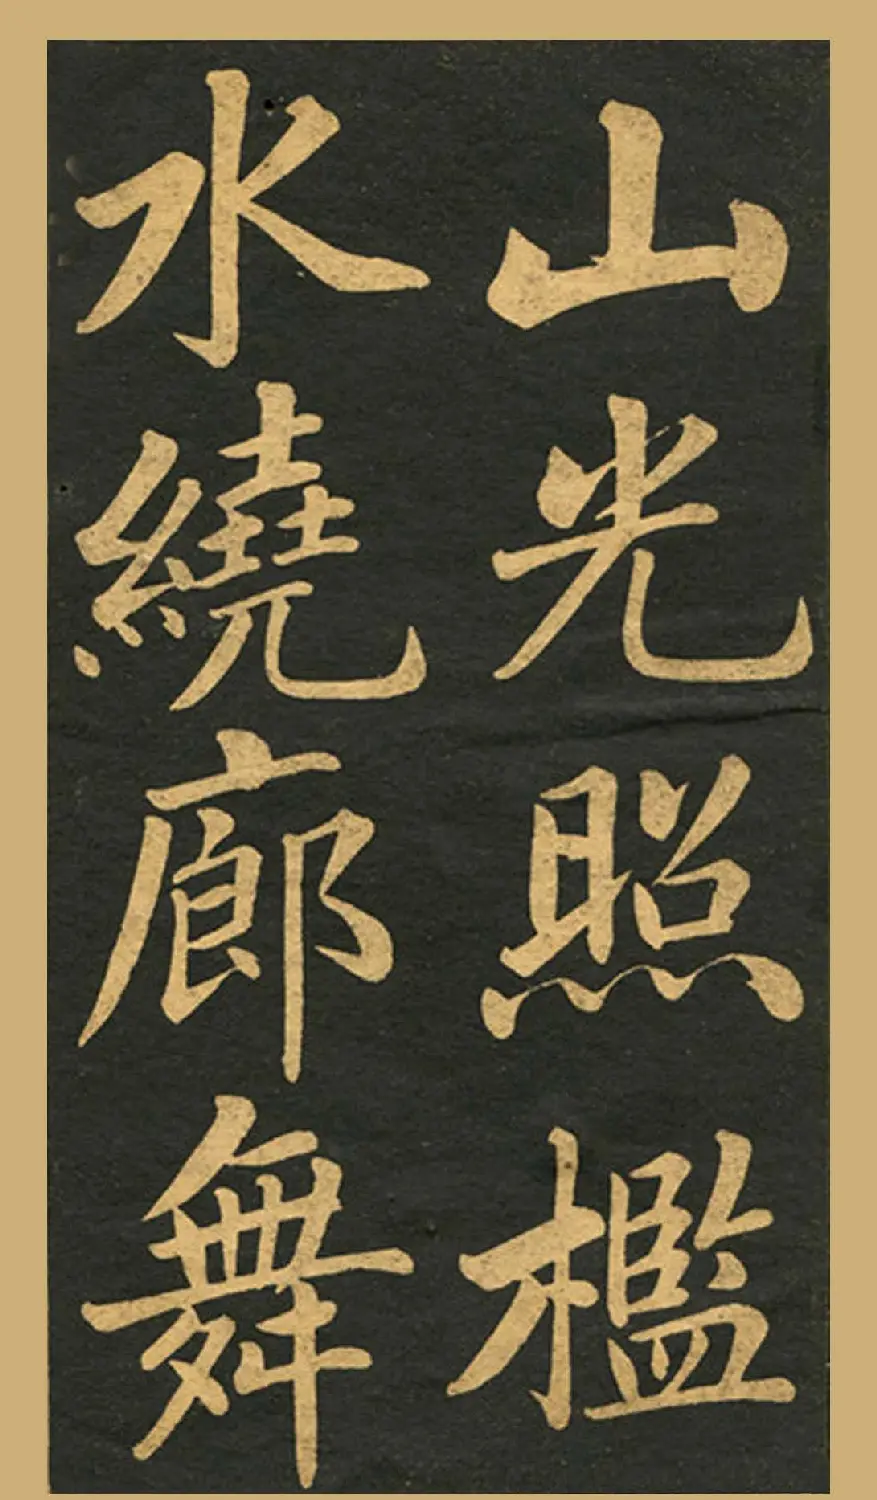 山光照檻
水繞廊舞